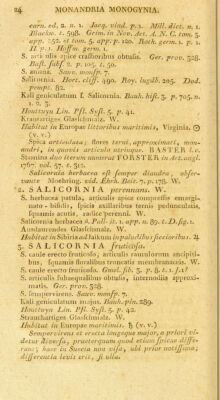 24 MONANDRIA MONOGYNIA.
carn. ed. 2. n. 1. Jacq. vind. p. 3. Mill. dict. n. 1.
Blackw. t. 598. Grim. in Nov. Act. A. N. C. tom. 3.
app. 252. et tom. 5. app. p. 120. Roth. germ. 1. p. 1.
II p. 1. Hoffm. germ. 1.
S. articulis apice crassioribus obtusis. Ger. prov. 328.
S. annua. Sauv. monsp. 7.
Salicornia. Hort. cliff. 490. Roy. lugdb. 205. Dod.
pempt. 82.
Kali geniculatum f. Salicornia. Bauh. hist. 3. p. 705. n.
1. 2. 3.
Houttuyn Lin. Pfl. Syst. 5. p. 41.
Krautartiges Glasschmalz. W.
Habitat in Europae littoribus maritimis, Virginia. ⊙
(v. v.)
Spica articulata; flores terni, approximati, monandri,
in quovis articulo utrinque. BASTER l. c.
Stamina duo terrae numerat FORSTER in Act. angl.
1767. vol. 57. t. 501.
Salicornia herbacea est semper diandra, observante
Moehring. vid. Ehrh. Beit. 7. p. 178. W.
2. SALICORNIA perennans. W.
S. herbacea patula, articulis apice compressis emarginato-bifidis,
spicis axillaribus ternis pedunculatis,
squamis acutis, radice perenni. W.
Salicornia herbacea δ. Pall. it. 1. app. n. 89. t. D. fig. 1.
Ausdaurendes Glasschmalz. W.
Habitat in Sibiriae ad lacuum in paludibus siccioribus. ♃
3. SALICORNIA fruticosa.
S. caule erecto fruticoso, articulis ramulorum ancipitibus,
squamis floralibus truncatis membranaceis. W.
S. caule erecto fruticoso. Gmel. sib. 3. p. 8. t. 1. f. 1?
S. articulis subaequalibus obtusis, internodiis approximatis.
Ger. prov. 328.
S. sempervirens. Sauv. monsp. 7.
Kali geniculatum majus. Bauh. pin. 289.
Houttuyn Lin. Pfl. Syst. 5. p. 42.
Strauchartiges Glasschmalz. W.
Habitat in Europae maritimis. ♄ (v. v.)
Sempervirens et erecta longeque major, a priori videtur
diversa, praeterquam quod etiam spicae differant;
haec in Suecia non visa, ubi prior notissima;
differentia levis erit, si ulla.